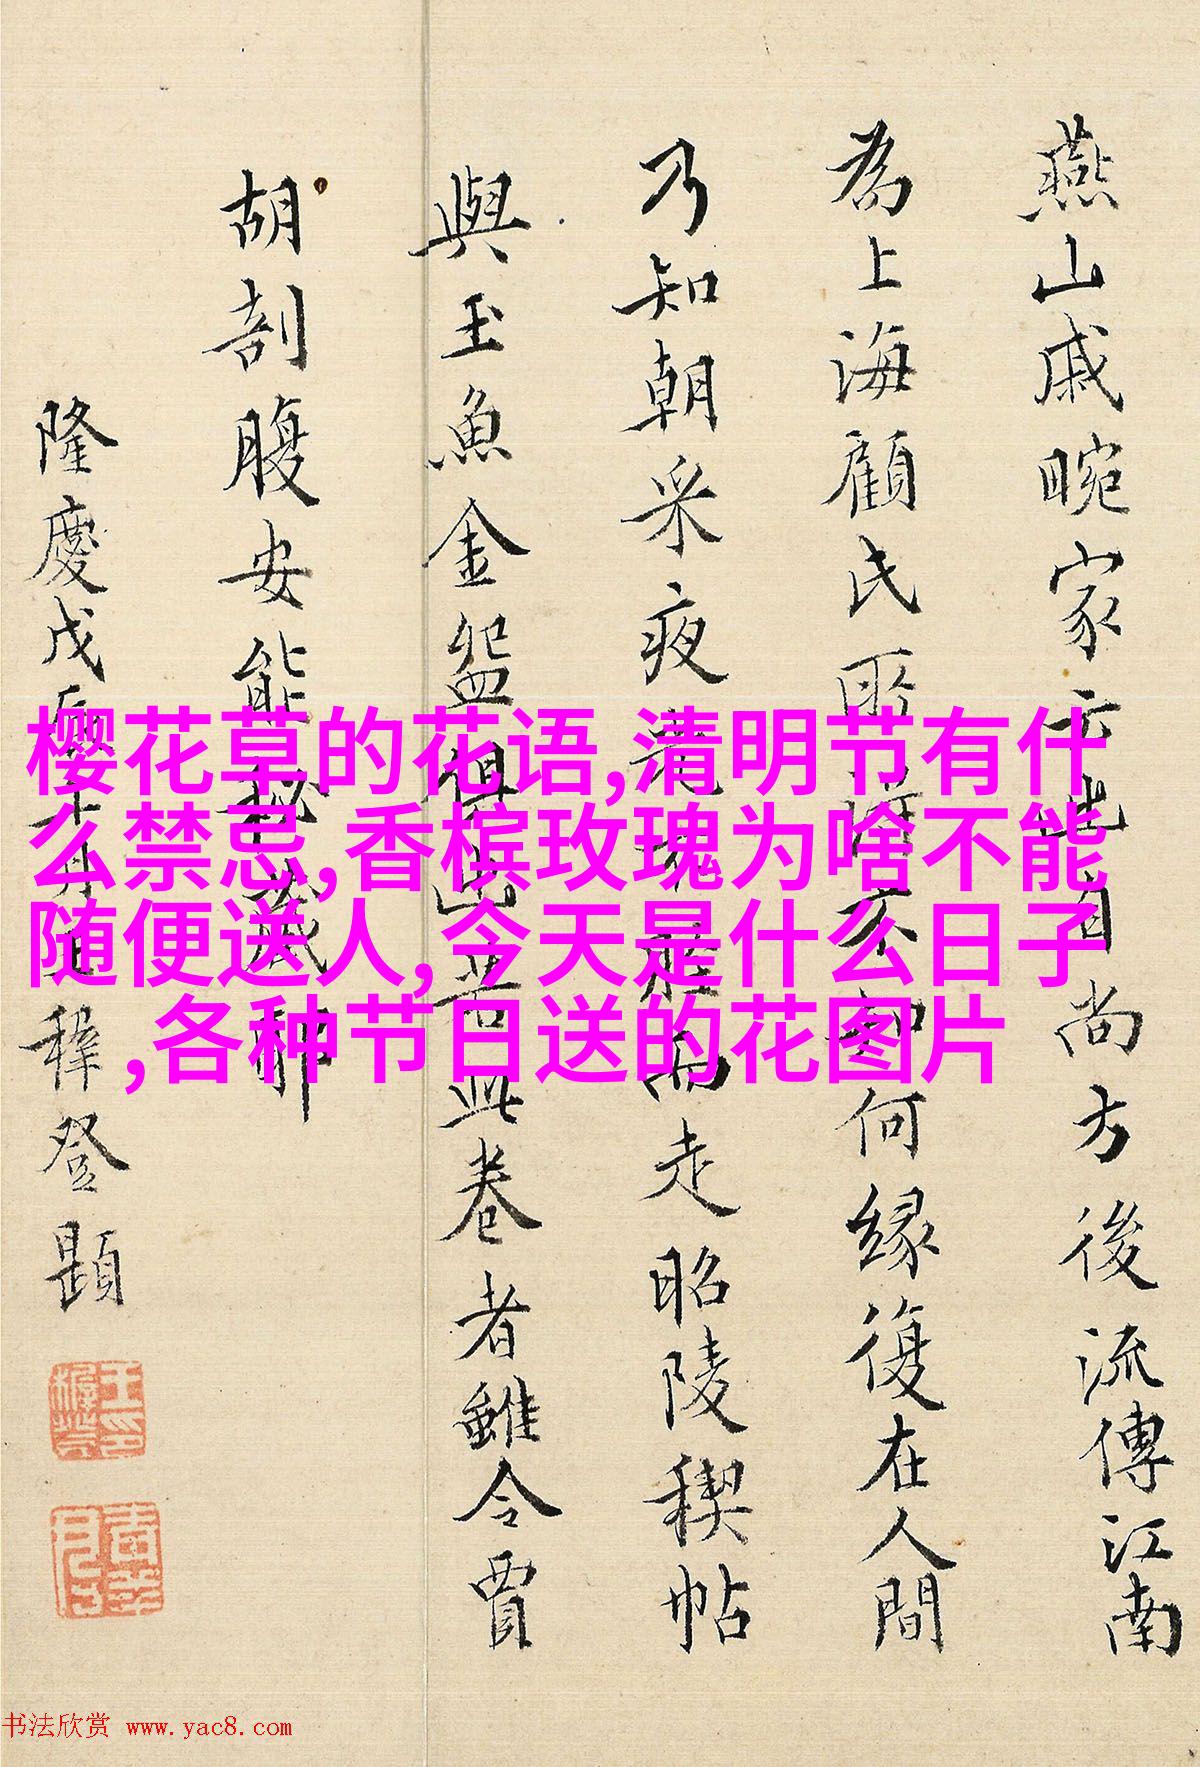 燕山戚畹家云是自尚方後流傳江南
為上海顧氏所得不知何緣復在人間
乃知朝采夜光塊然而走昭陵稧帖
與玉魚金盌俱出昔此卷者雖令賈
胡剖腹安能秘藏耶
隆慶戊辰十月王穉登題
樱花草的花语,清明节有什
么禁忌,香槟玫瑰为啥不能
随便送人,今天是什么日子
,各种节日送的花图片
书法欣赏 www.yac8.com